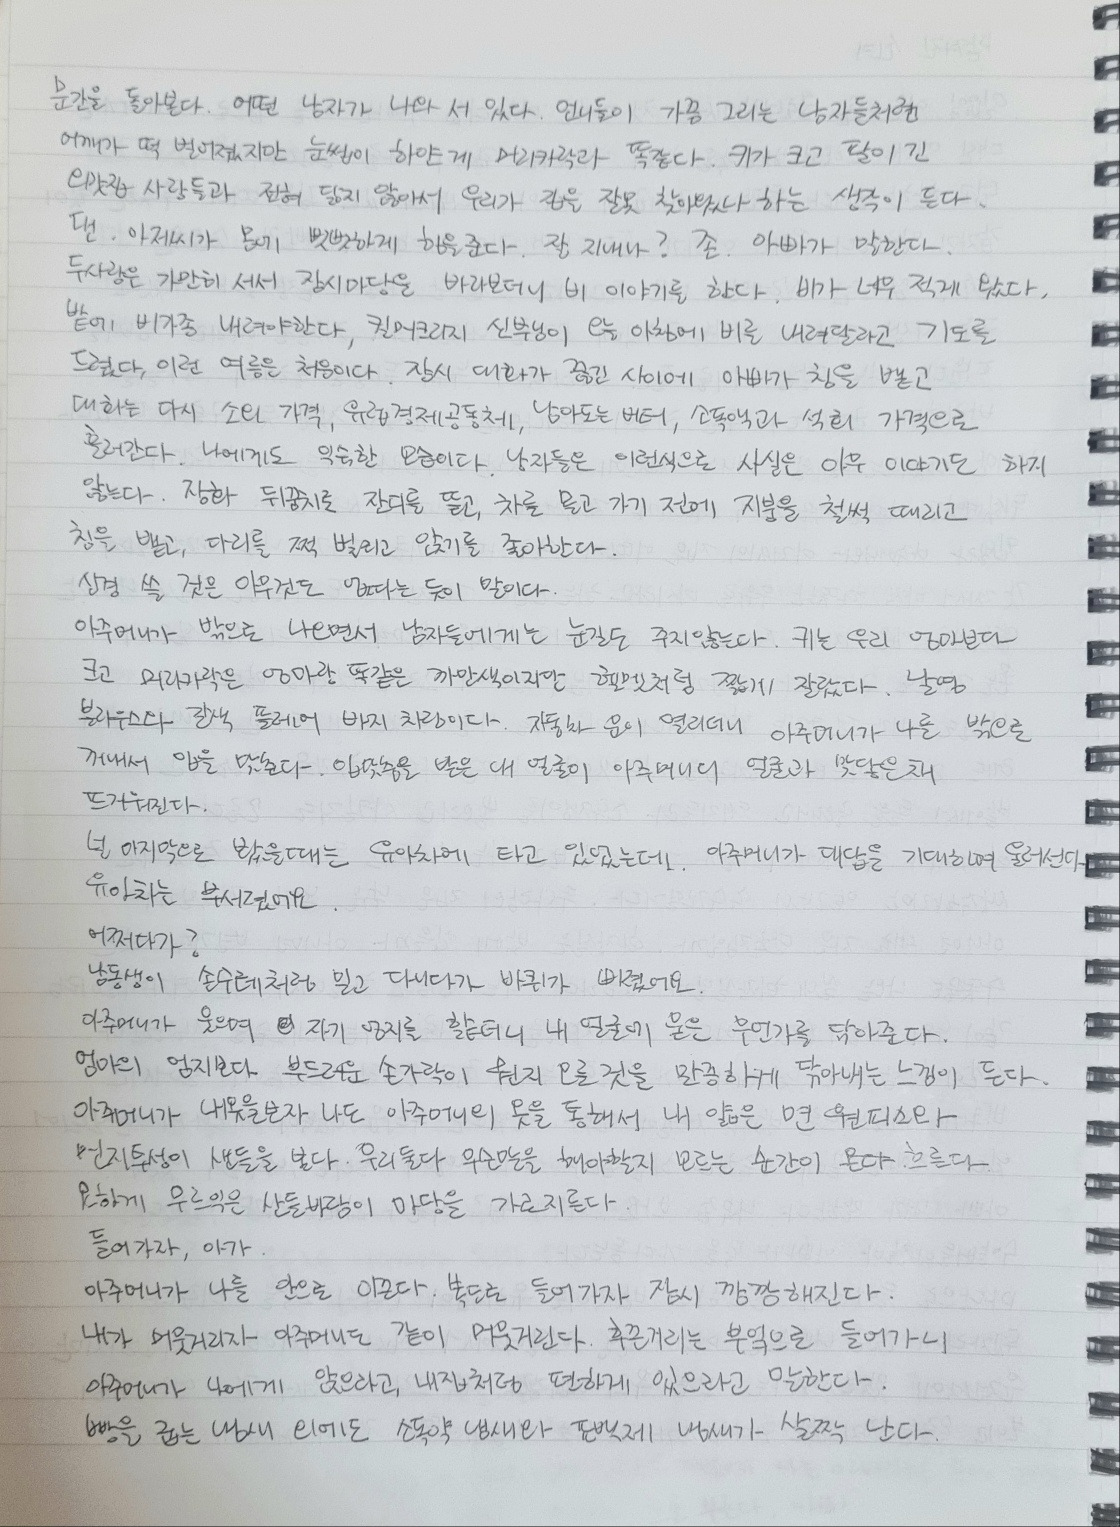 문간을 돌아본다. 어떤 남자가 나와 서 있다. 언니들이 가끔 그리는 남자들처럼
어깨가 떡 벌어졌지만 눈썹이 하얀게 머리카락과 똑같다. 키가 크고 팔이 긴
외갓집 사람들과 전혀 닮지 않아서 우리가 집을 잘못 찾아왔나 하는 생각이 든다.
댄. 아저씨가 몸에 뻣뻣하게 힘을준다. 잘 지내나? 존. 아빠가 말한다.
두사람은 가만히 서서 잠시마당을 바라보더니 비 이야기를 한다. 비가 너무 적게 왔다,
밭에 비가좀 내려야한다, 킬머크리지 신부님이 오늘 아침에 비를 내려달라고 기도를
드렸다, 이런 여름은 처음이다. 잠시 대화가 끊긴 사이에 아빠가 침을 뱉고
대화는 다시 소의 가격, 유럽경제공동체, 남아도는 버터, 소독액과 석회 가격으로
흘러간다. 나에게도 익숙한 모습이다. 남자들은 이런식으로 사실은 아무 이야기도 하지
않는다. 장화 뒤꿈치로 잔디를 뜯고, 차를 몰고 가기 전에 지붕을 철썩 때리고
침을 뱉고, 다리를 쩍 벌리고 앉기를 좋아한다.
신경 쓸 것은 아무것도 없다는 듯이 말이다.
아주머니가 밖으로 나오면서 남자들에게는 눈길도 주지않는다. 키는 우리 엄마보다
크고 머리카락은 엄마랑 똑같은 까만색이지만 헬멧처럼 짧게 잘랐다. 날염
블라우스와 갈색 플레어 바지 차림이다. 자동차 문이 열리더니 아주머니가 나를 밖으로
꺼내서 입을 맞춘다. 입맞춤을 받은 내 얼굴이 아주머니의 얼굴과 맞닿은채
뜨거워진다.
널 마지막으로 봤을때는 유아차에 타고 있었는데. 아주머니가 대답을 기대하며 물러선다.
유아차는 부서졌어요.
어쩌다가?
남동생이 손수레처럼 밀고 다니다가 바퀴가 빠졌어요.
아주머니가 웃으며 자기 엄지를 핥더니 내 얼굴에 묻은 무언가를 닦아준다.
엄마의 엄지보다 부드러운 손가락이 뭔지 모를 것을 말끔하게 닦아내는 느낌이 든다.
아주머니가 내옷을보자 나도 아주머니의 눈을 통해서 내 얇은 면 원피스와
먼지투성이 샌들을 본다. 우리둘다 무슨말을 해야할지 모르는 순간이 흐른다.
묘하게 무르익은 산들바람이 마당을 가로지른다.
들어가자, 아가.
아주머니가 나를 안으로 이끈다. 복도로 들어가자 잠시 깜깜해진다.
내가 머뭇거리자 아주머니도 같이 머뭇거린다. 후끈거리는 부엌으로 들어가니
아주머니가 나에게 앉으라고, 내집처럼 편하게 있으라고 말한다.
빵을 굽는 냄새 외에도 소독약 냄새와 표백제 냄새가 살짝 난다.